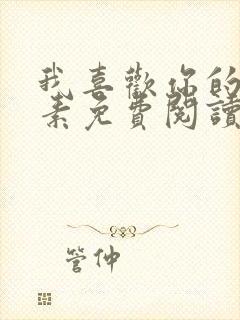 我喜歡你的
素免費閱讀
管仲